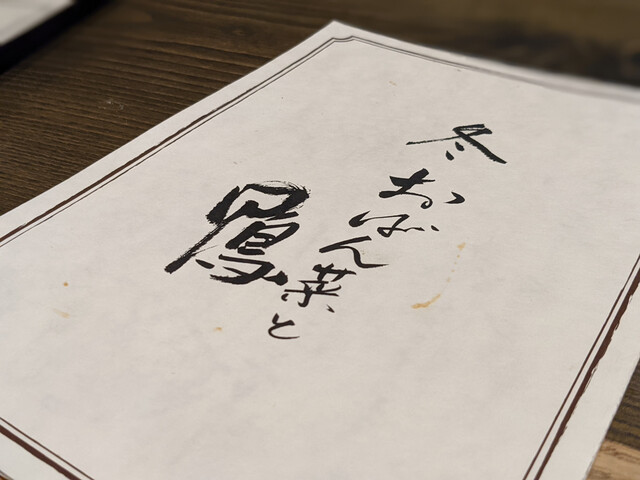 冬おばん菜と
鴨